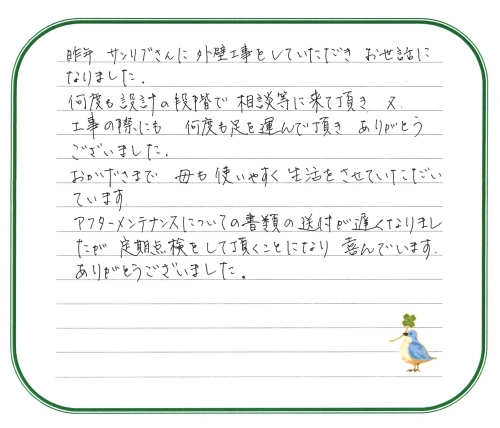 昨年 サンリブさんに 外壁工事をしていただき お世話に
なりました.
何度も設計の段階で 相談等に来て頂き 又.
工事の際にも 何度も足を運んで頂き ありがとう
ございました.
おかげさまで 母も使いやすく生活をさせていただい
ています.
アフターメンテナンスについての書類の送付が遅くなりまし
たが 定期点検をして頂くことになり 喜んでいます.
ありがとうございました。